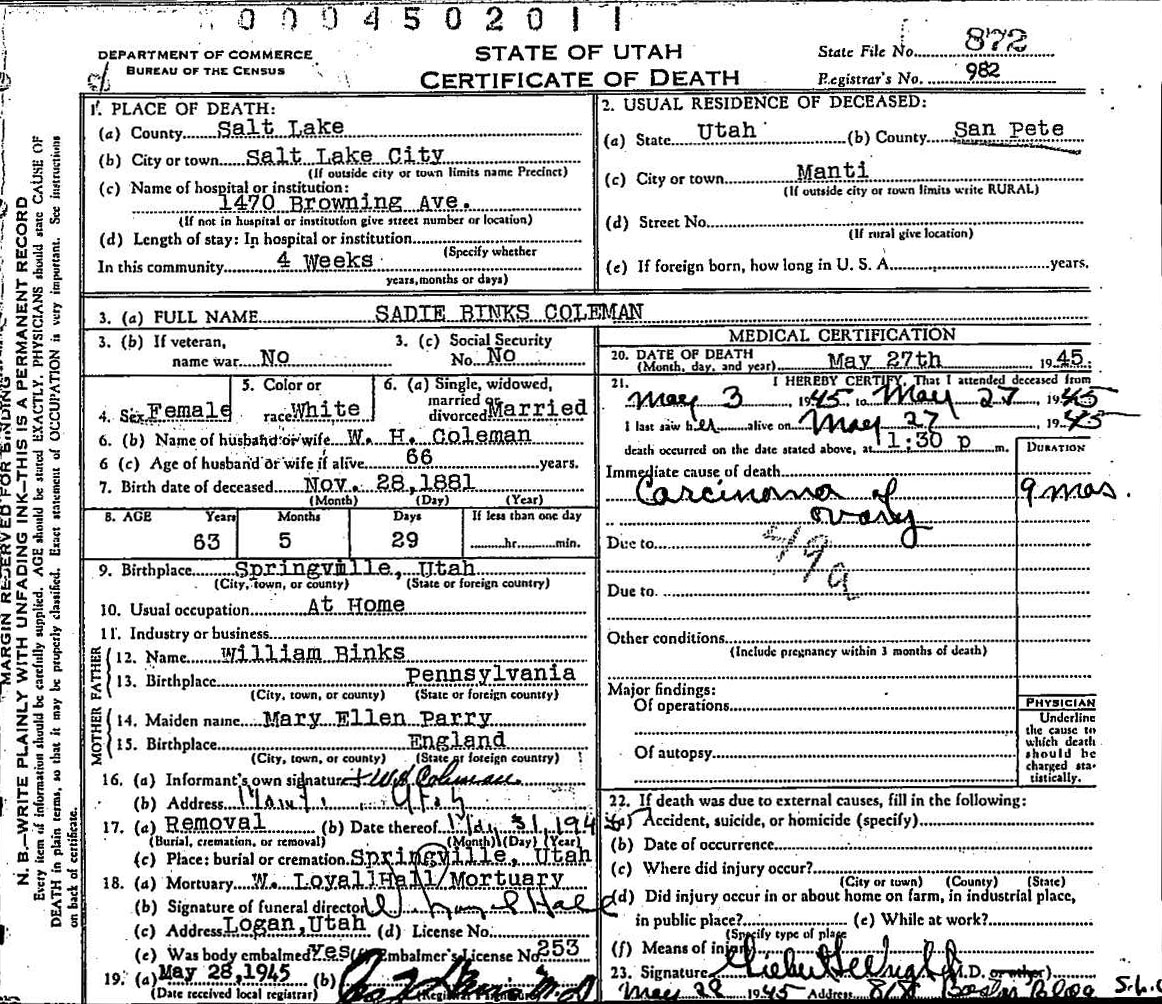 0004502011
DEPARTMENT OF COMMERCE
BUREAU OF THE CENSUS
STATE OF UTAH
CERTIFICATE OF DEATH
State File No. 872
Registrar's No. 982
MARGIN RESERVED FOR BINDING
N. B.—WRITE PLAINLY WITH UNFADING INK—THIS IS A PERMANENT RECORD
Every item of information should be carefully supplied. AGE should be stated EXACTLY. PHYSICIANS should state CAUSE OF
DEATH in plain terms, so that it may be properly classified. Exact statement of OCCUPATION is very important. See instructions
on back of certificate.
1. PLACE OF DEATH:
(a) County Salt Lake
(b) City or town Salt Lake City
(If outside city or town limits name Precinct)
(c) Name of hospital or institution:
1470 Browning Ave.
(If not in hospital or institution give street number or location)
(d) Length of stay: In hospital or institution
(Specify whether
In this community 4 Weeks
years, months or days)
2. USUAL RESIDENCE OF DECEASED:
(a) State Utah (b) County San Pete
(c) City or town Manti
(If outside city or town limits write RURAL)
(d) Street No.
(If rural give location)
(e) If foreign born, how long in U. S. A. years.
3. (a) FULL NAME SADIE BINKS COLEMAN
3. (b) If veteran, name war No
3. (c) Social Security No. No
4. Sex Female
5. Color or race White
6. (a) Single, widowed, married or divorced Married
6. (b) Name of husband or wife W. H. Coleman
6 (c) Age of husband or wife if alive 66 years.
7. Birth date of deceased Nov. 28, 1881
(Month) (Day) (Year)
8. AGE Years Months Days If less than one day
63 5 29 hr. min.
9. Birthplace Springville, Utah
(City, town, or county) (State or foreign country)
10. Usual occupation At Home
11. Industry or business
FATHER
12. Name William Binks
13. Birthplace Pennsylvania
(City, town, or county) (State or foreign country)
MOTHER
14. Maiden name Mary Ellen Parry
15. Birthplace England
(City, town, or county) (State or foreign country)
16. (a) Informant's own signature W H Coleman
(b) Address Manti Utah
17. (a) Removal (b) Date thereof May 31, 194
(Burial, cremation, or removal) (Month) (Day) (Year)
(c) Place: burial or cremation Springville, Utah
18. (a) Mortuary W. Loyall Hall Mortuary
(b) Signature of funeral director W. Loyal Hall
(c) Address Logan, Utah (d) License No.
(e) Was body embalmed Yes (f) Embalmer's License No. 253
19. (a) May 28, 1945 (b)
(Date received local registrar)
MEDICAL CERTIFICATION
20. DATE OF DEATH
(Month, day, and year) May 27th 1945
21. I HEREBY CERTIFY, That I attended deceased from
May 3 1945 to May 27, 1945
I last saw her alive on May 27 1945
death occurred on the date stated above, at 1:30 p m.
DURATION
Immediate cause of death
Carcinoma of 9 mos.
ovary
Due to
49a
Due to
Other conditions
(Include pregnancy within 3 months of death)
Major findings:
Of operations
Of autopsy
PHYSICIAN
Underline
the cause to
which death
should be
charged sta-
tistically.
22. If death was due to external causes, fill in the following:
(a) Accident, suicide, or homicide (specify)
(b) Date of occurrence
(c) Where did injury occur?
(City or town) (County) (State)
(d) Did injury occur in or about home on farm, in industrial place,
in public place? (e) While at work?
(Specify type of place
(f) Means of injury
23. Signature M.D. or other)
May 28 1945 Address 818 Boston Bldg S.L.C